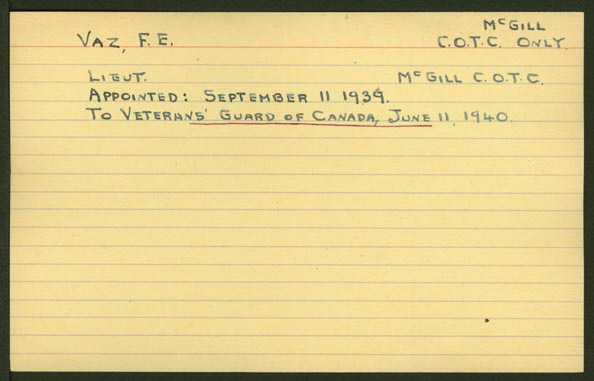 McGILL
VAZ, F. E. C.O.T.C. ONLY.
LIEUT. McGILL C.O.T.C.
APPOINTED: SEPTEMBER 11 1939.
TO VETERANS' GUARD OF CANADA, JUNE 11, 1940.